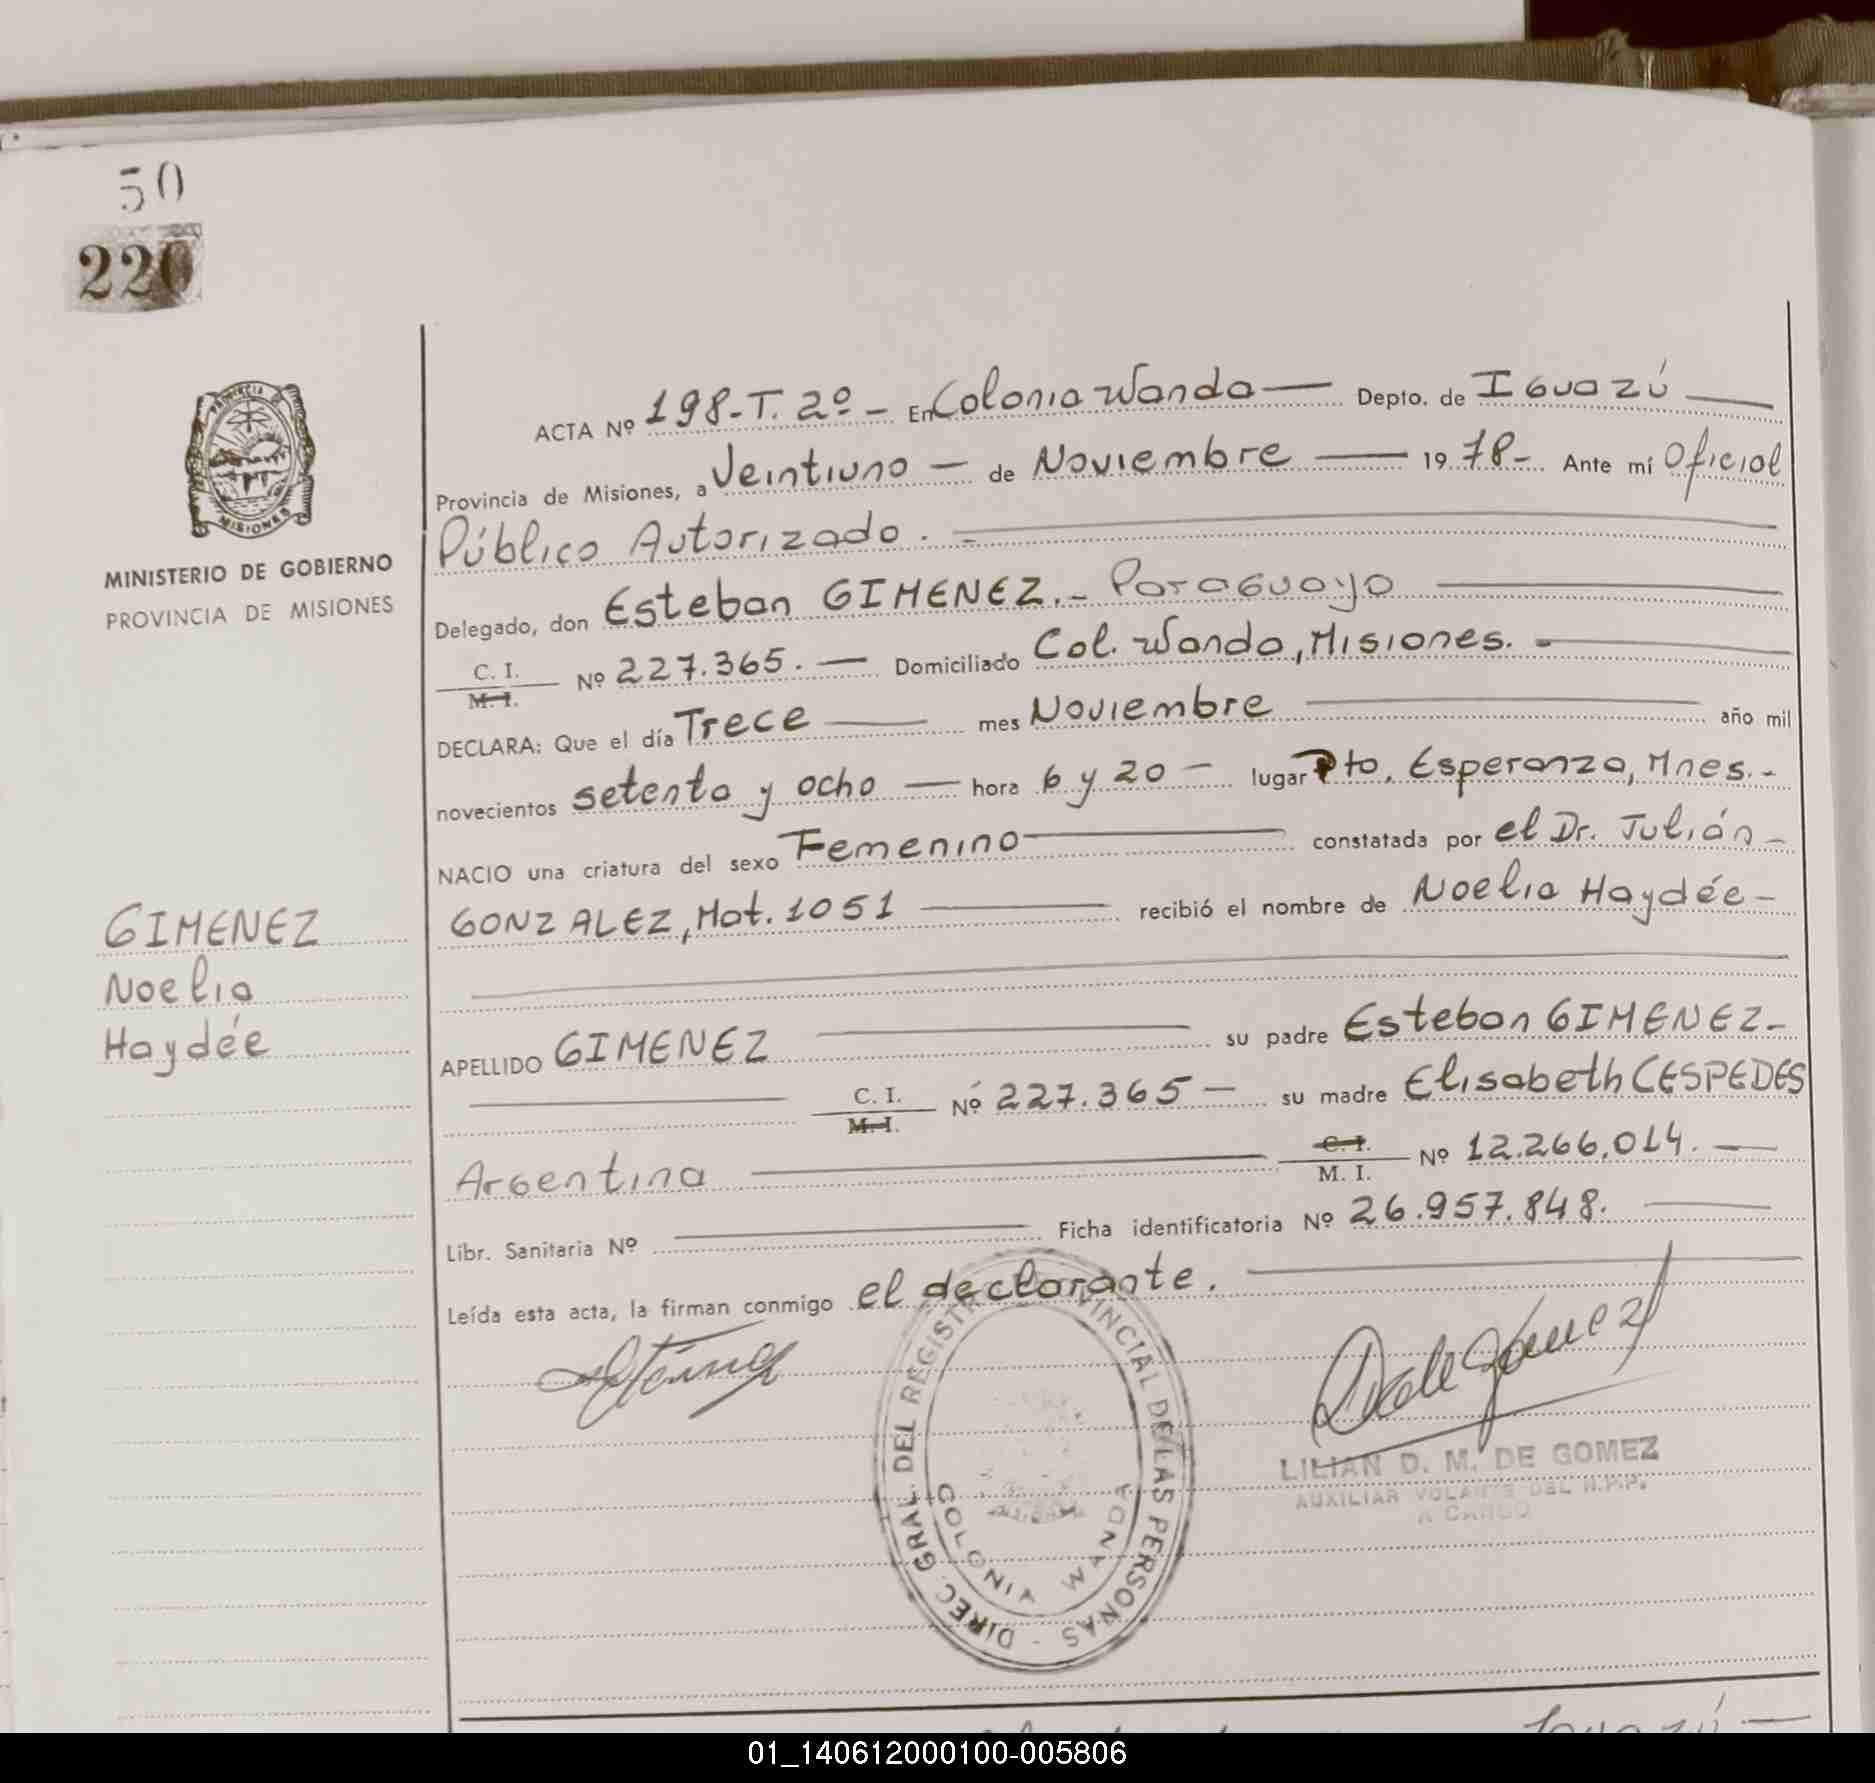 50
220
PROVINCIA DE
MISIONES
MINISTERIO DE GOBIERNO
PROVINCIA DE MISIONES
GIMENEZ
Noelia
Haydée
ACTA Nº 198-T. 2º - En Colonia Wanda — Depto. de Iguazú —
Provincia de Misiones, a Veintiuno — de Noviembre — 19 78- Ante mí Oficial
Público Autorizado. -
Delegado, don Esteban GIMENEZ.- Paraguayo
C. I.
M. I. Nº 227.365. — Domiciliado Col. Wanda, Misiones. -
DECLARA: Que el día Trece — mes Noviembre — año mil
novecientos setenta y ocho — hora 6 y 20 - lugar Pto. Esperanza, Mnes.-
NACIO una criatura del sexo Femenino — constatada por el Dr. Julián -
GONZALEZ, Mat. 1051 — recibió el nombre de Noelia Haydée -
APELLIDO GIMENEZ — su padre Esteban GIMENEZ-
C. I.
M. I. Nº 227.365 — su madre Elisabeth CESPEDES
Argentina — C. I.
M. I. Nº 12.266.014. —
Libr. Sanitaria Nº — Ficha identificatoria Nº 26.957.848. —
Leída esta acta, la firman conmigo el declarante. —
DIREC. GRAL. DEL REGISTRO PROVINCIAL DE LAS PERSONAS -
COLONIA WANDA
LILIAN D. M. DE GOMEZ
AUXILIAR VOLANTE DEL R.P.P.
A CARGO
01_140612000100-005806